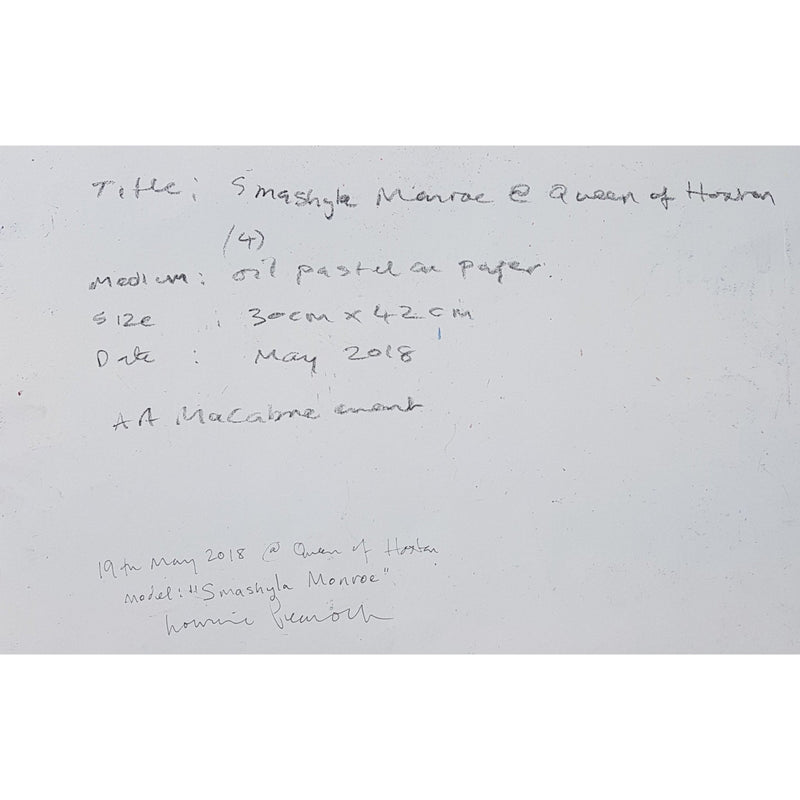 Title: Smashyla Monroe @ Queen of Hoxton
(4)
Medium: oil pastel on paper.
Size : 30cm x 42cm
Date : May 2018
AA Macabre event
19th May 2018 @ Queen of Hoxton
Model: "Smashyla Monroe"